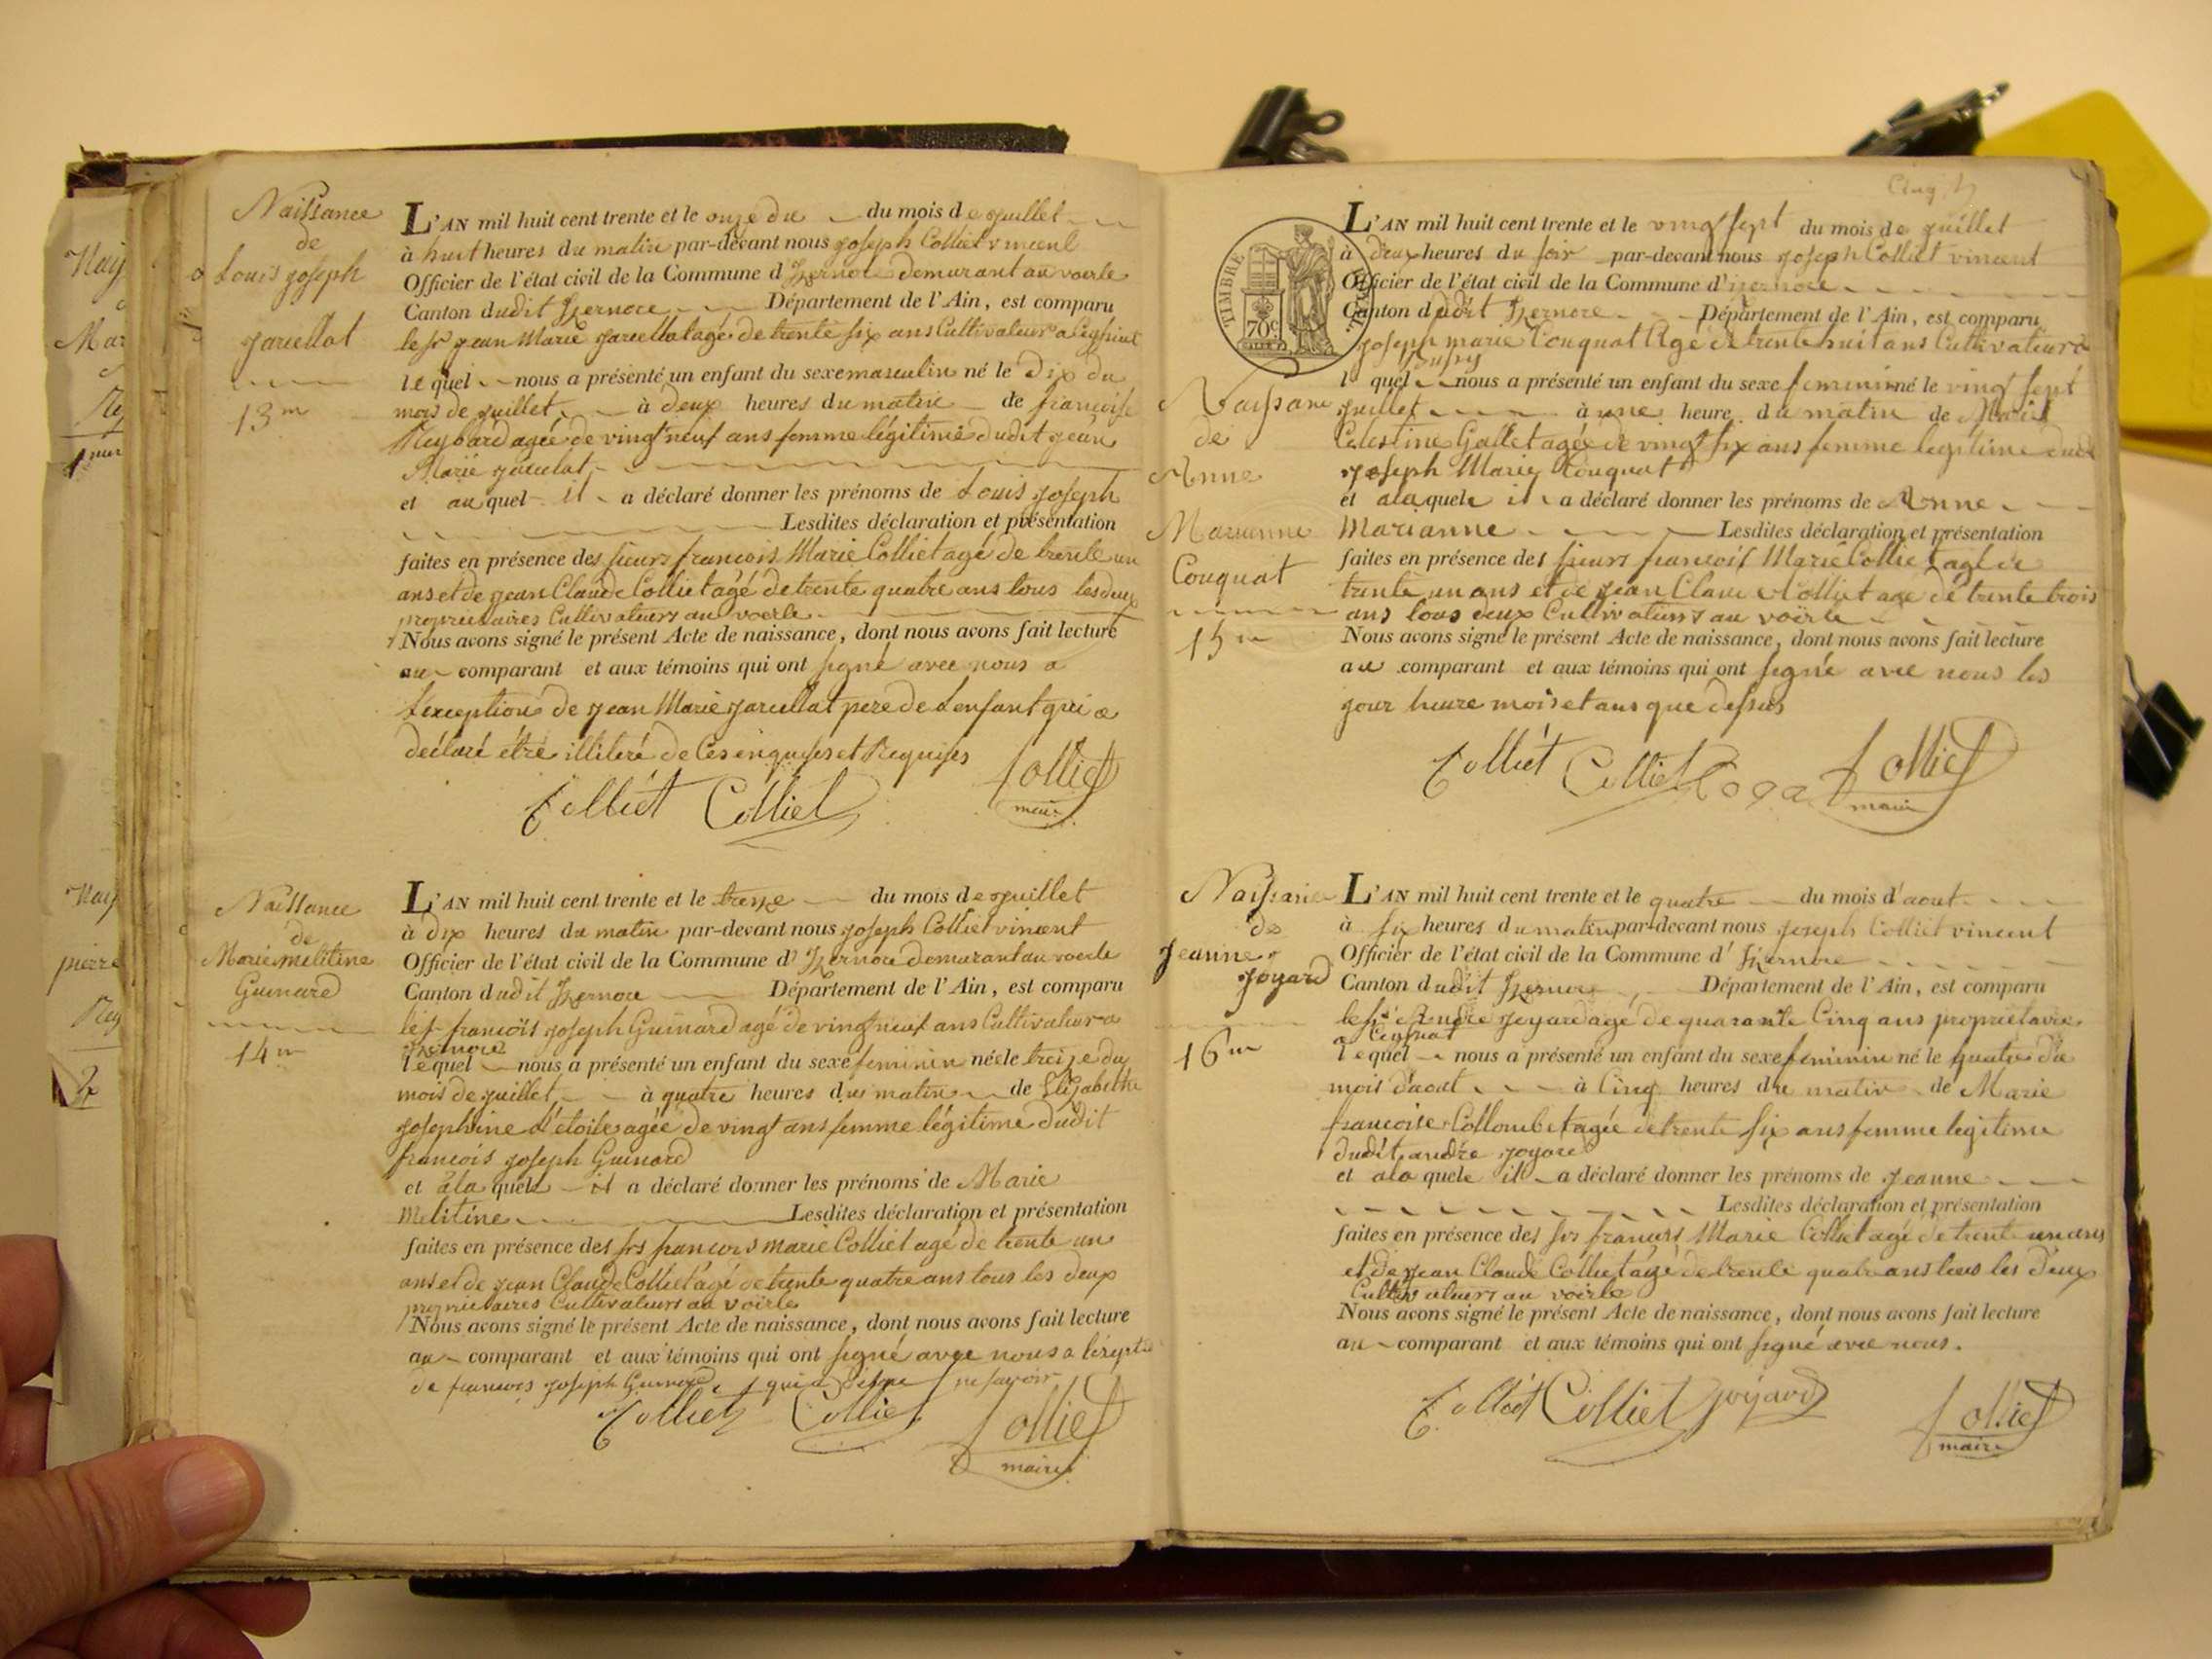 Naissance
de
Louis joseph
jarcellat
13me
L'AN mil huit cent trente et le onze du du mois de juillet
à huit heures du matin par-devant nous joseph Colliet vincent
Officier de l'état civil de la Commune d'Izernore demurant au voerle
Canton dudit Izernore Département de l'Ain, est comparu
le sr jean Marie jarcellat agé de trente six ans Cultivateur a
lequel nous a présenté un enfant du sexe masculin né le dix du
mois de juillet à deux heures du matin de francoise
Reybard agée de vingt neuf ans femme légitime dudit jean
Marie jarcelat
et au quel il a déclaré donner les prénoms de Louis joseph
Lesdites déclaration et présentation
faites en présence des sieurs francois Marie Colliet agé de trente un
ans et de jean Claude Colliet agé de trente quatre ans tous les deux
proprietaires Cultivateurs au voerle
Nous avons signé le présent Acte de naissance, dont nous avons fait lecture
au comparant et aux témoins qui ont signé avec nous a
Lexception de jean Marie jarcellat pere de Lenfant qui a
déclaré être illiteré de Ces enquises et Requises
Colliet Colliet Colliet
maire
Naissance
de
Marie melitine
Guinard
14me
L'AN mil huit cent trente et le treize du mois de juillet
à dix heures du matin par-devant nous joseph Colliet vincent
Officier de l'état civil de la Commune d'Izernore demurant au voerle
Canton dudit Izernore Département de l'Ain, est comparu
le sr francois joseph Guinard agé de vingt neuf ans Cultivateur a
Izernore
lequel nous a présenté un enfant du sexe feminin née le treize du
mois de juillet à quatre heures du matin de Elizabethe
josephine L'étoile agée de vingt ans femme légitime dudit
francois joseph Guinard
et a la quele il a déclaré donner les prénoms de Marie
Melitine Lesdites déclaration et présentation
faites en présence des srs francois marie Colliet agé de trente un
ans et de jean Claude Colliet agé de trente quatre ans tous les deux
proprietaires Cultivateurs au voerle
Nous avons signé le présent Acte de naissance, dont nous avons fait lecture
au comparant et aux témoins qui ont signé avec nous a
de francois joseph Guinard qui a ne savoir
Colliet Colliet Colliet
maire
TIMBRE
70c
L'AN mil huit cent trente et le vingt sept du mois de juillet
à deux heures du soir par-devant nous joseph Colliet vincent
Officier de l'état civil de la Commune d'izernore
Canton dudit Izernore Département de l'Ain, est comparu
joseph marie Couquat Agé de trente huit ans Cultivateur a
lequel nous a présenté un enfant du sexe feminin né le vingt sept
juillet à une heure du matin de Marie
Celestine Gallet agée de vingt six ans femme legitime dudit
joseph Marie Couquat
et a la quele il a déclaré donner les prénoms de Anne
Marianne Lesdites déclaration et présentation
faites en présence des sieurs francois Marie Colliet agé de
trente un ans et de jean Claude Colliet agé de trente trois
ans tous deux Cultivateurs au voerle
Nous avons signé le présent Acte de naissance, dont nous avons fait lecture
au comparant et aux témoins qui ont signé avec nous les
jour heure mois et ans que dessus
Colliet Colliet Colliet
maire
Naissance
de
Anne
Marianne
Couquat
15me
Naissance
de
Jeanne
Joyard
16me
L'AN mil huit cent trente et le quatre du mois d'aout
à six heures du matin par-devant nous joseph Colliet vincent
Officier de l'état civil de la Commune d'Izernore
Canton dudit Izernore Département de l'Ain, est comparu
le sr andre joyard agé de quarante Cinq ans proprietaire
a Ceyssiat
lequel nous a présenté un enfant du sexe feminin né le quatre du
mois d'aout à Cinq heures du matin de Marie
francoise Collombet agée de trente six ans femme legitime
dudit andré joyard
et a la quele il a déclaré donner les prénoms de jeanne
Lesdites déclaration et présentation
faites en présence des srs francois Marie Colliet agé de trente un ans
et de jean Claude Colliet agé de trente quatre ans tous les deux
Cultivateurs au voerle
Nous avons signé le présent Acte de naissance, dont nous avons fait lecture
au comparant et aux témoins qui ont signé avec nous.
Colliet Colliet joyard Colliet
maire